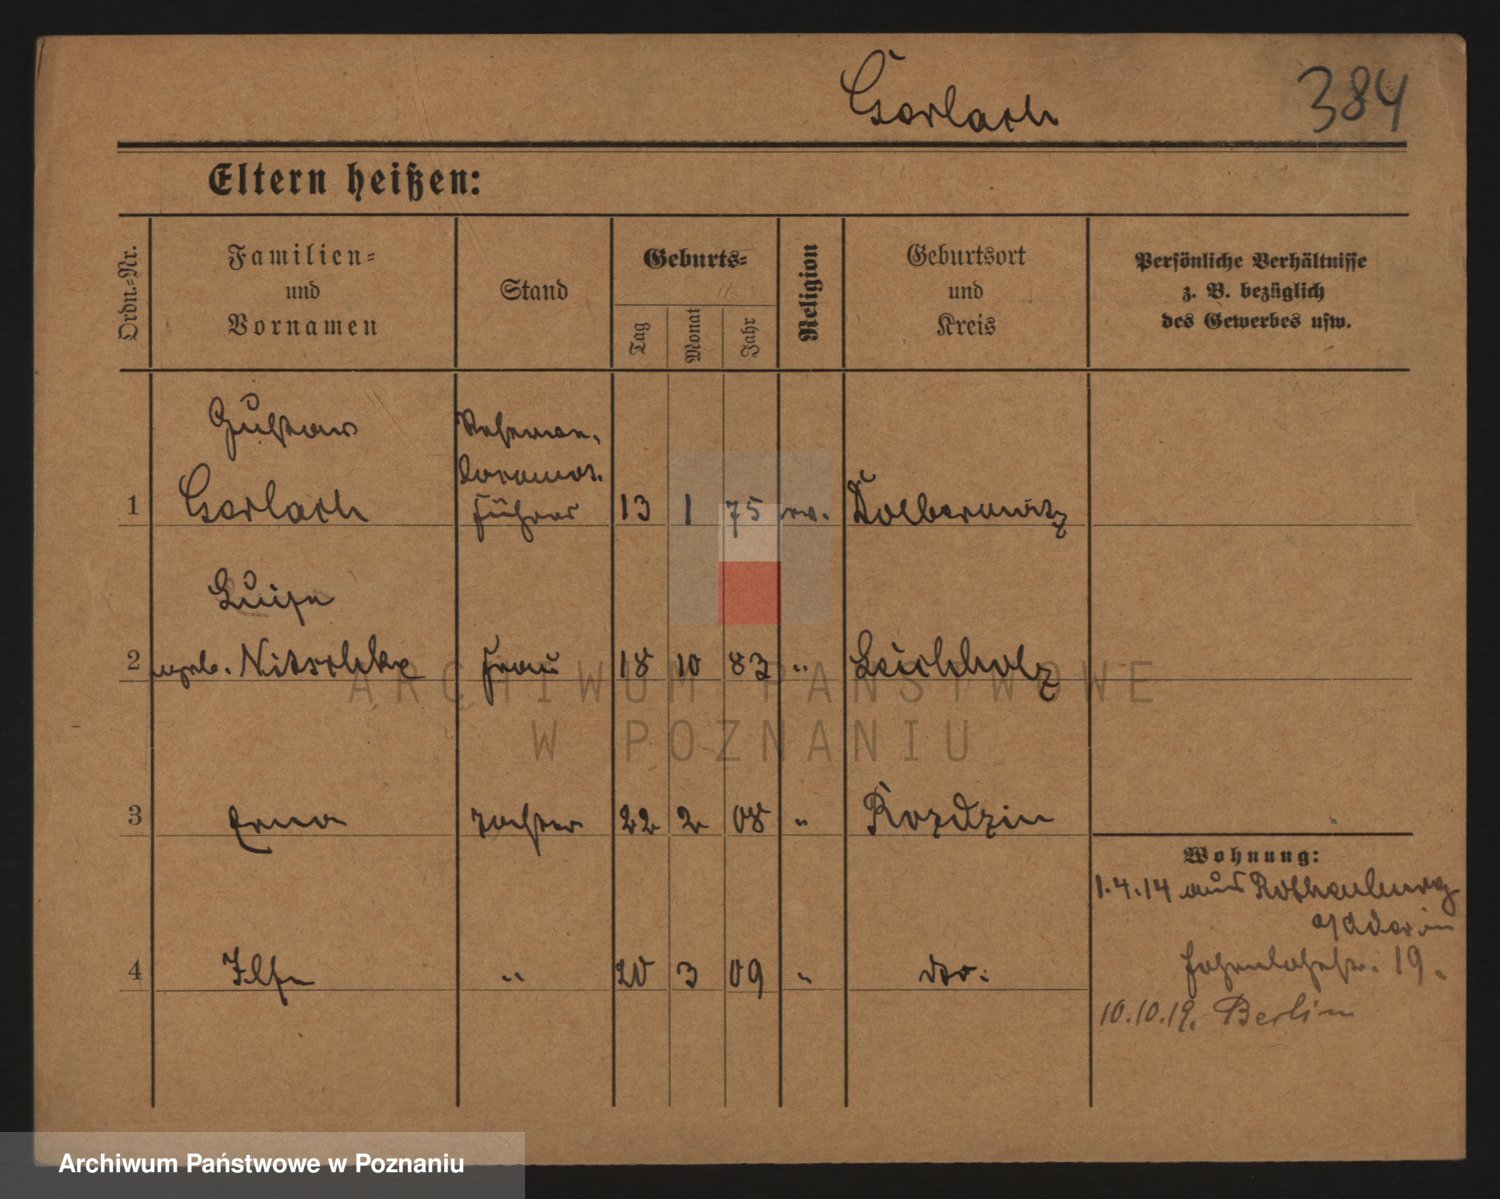 Gerlach
384
Eltern heißen:
Ordn.-Nr.
Familien-
und
Vornamen
Stand
Geburts-
Tag
Monat
Jahr
Religion
Geburtsort
und
Kreis
Persönliche Verhältnisse
z. B. bezüglich
des Gewerbes usw.
Gustav
1 Gerlach führer 13 1 75 ev.
Luise
2 geb. Nitschke Frau 18 10 83 " Leichholz
3 Erna Tochter 22 2 08 " Rozdzin
4 Ilse " 20 3 09 " do.
Wohnung:
1.4.14 aus Rothenburg
a/Oder in
19.
10.10.19. Berlin
ARCHIWUM PAŃSTWOWE
W POZNANIU
Archiwum Państwowe w Poznaniu